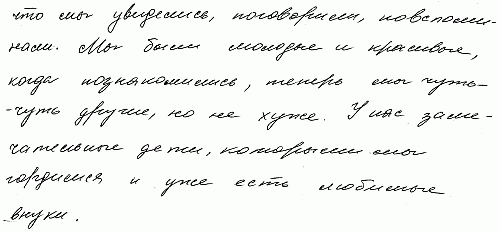 что мы увиделись, поговорили, повспоми-
нали. Мы были молодые и красивые,
когда познакомились, теперь мы чуть-
-чуть другие, но не хуже. У нас заме-
чательные дети, которыми мы
гордимся и уже есть любимые
внуки.